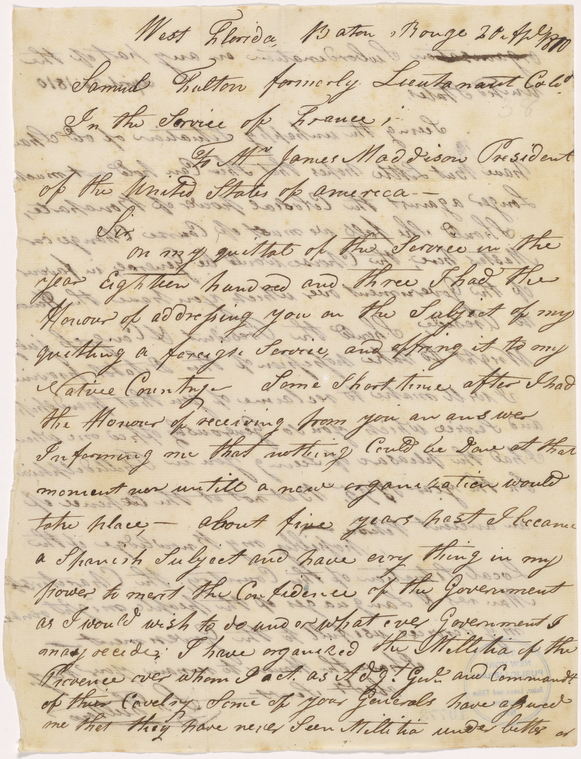 West Florida, Baton Rouge 20 Apl 1810
Samuel Fulton formerly Lieutenant Colo.
In the Service of France;
To Mr. James Maddison President
of the United States of america —
Sir
on my quittal of the Service in the
year Eighteen hundred and three I had the
Honour of addressing you on the Subject of my
quitting a foreign Service, and offring it to my
Native Country Some Short time after I had
the Honour of receiving from you an answer
Informing me that nothing Could be Done at that
moment nor untill a new organization would
take place — about five years past I became
a Spanish Subject and have evry thing in my
power to merit the Confidence of the Government
as I would wish to do under what ever Government I
may recide: I have organized the Millitia of the
Provence over whom I act as Adjt. Genl. and Commandt
of their Cavelry Some of your Generals have assured
me that they have never Seen Millitia under better or